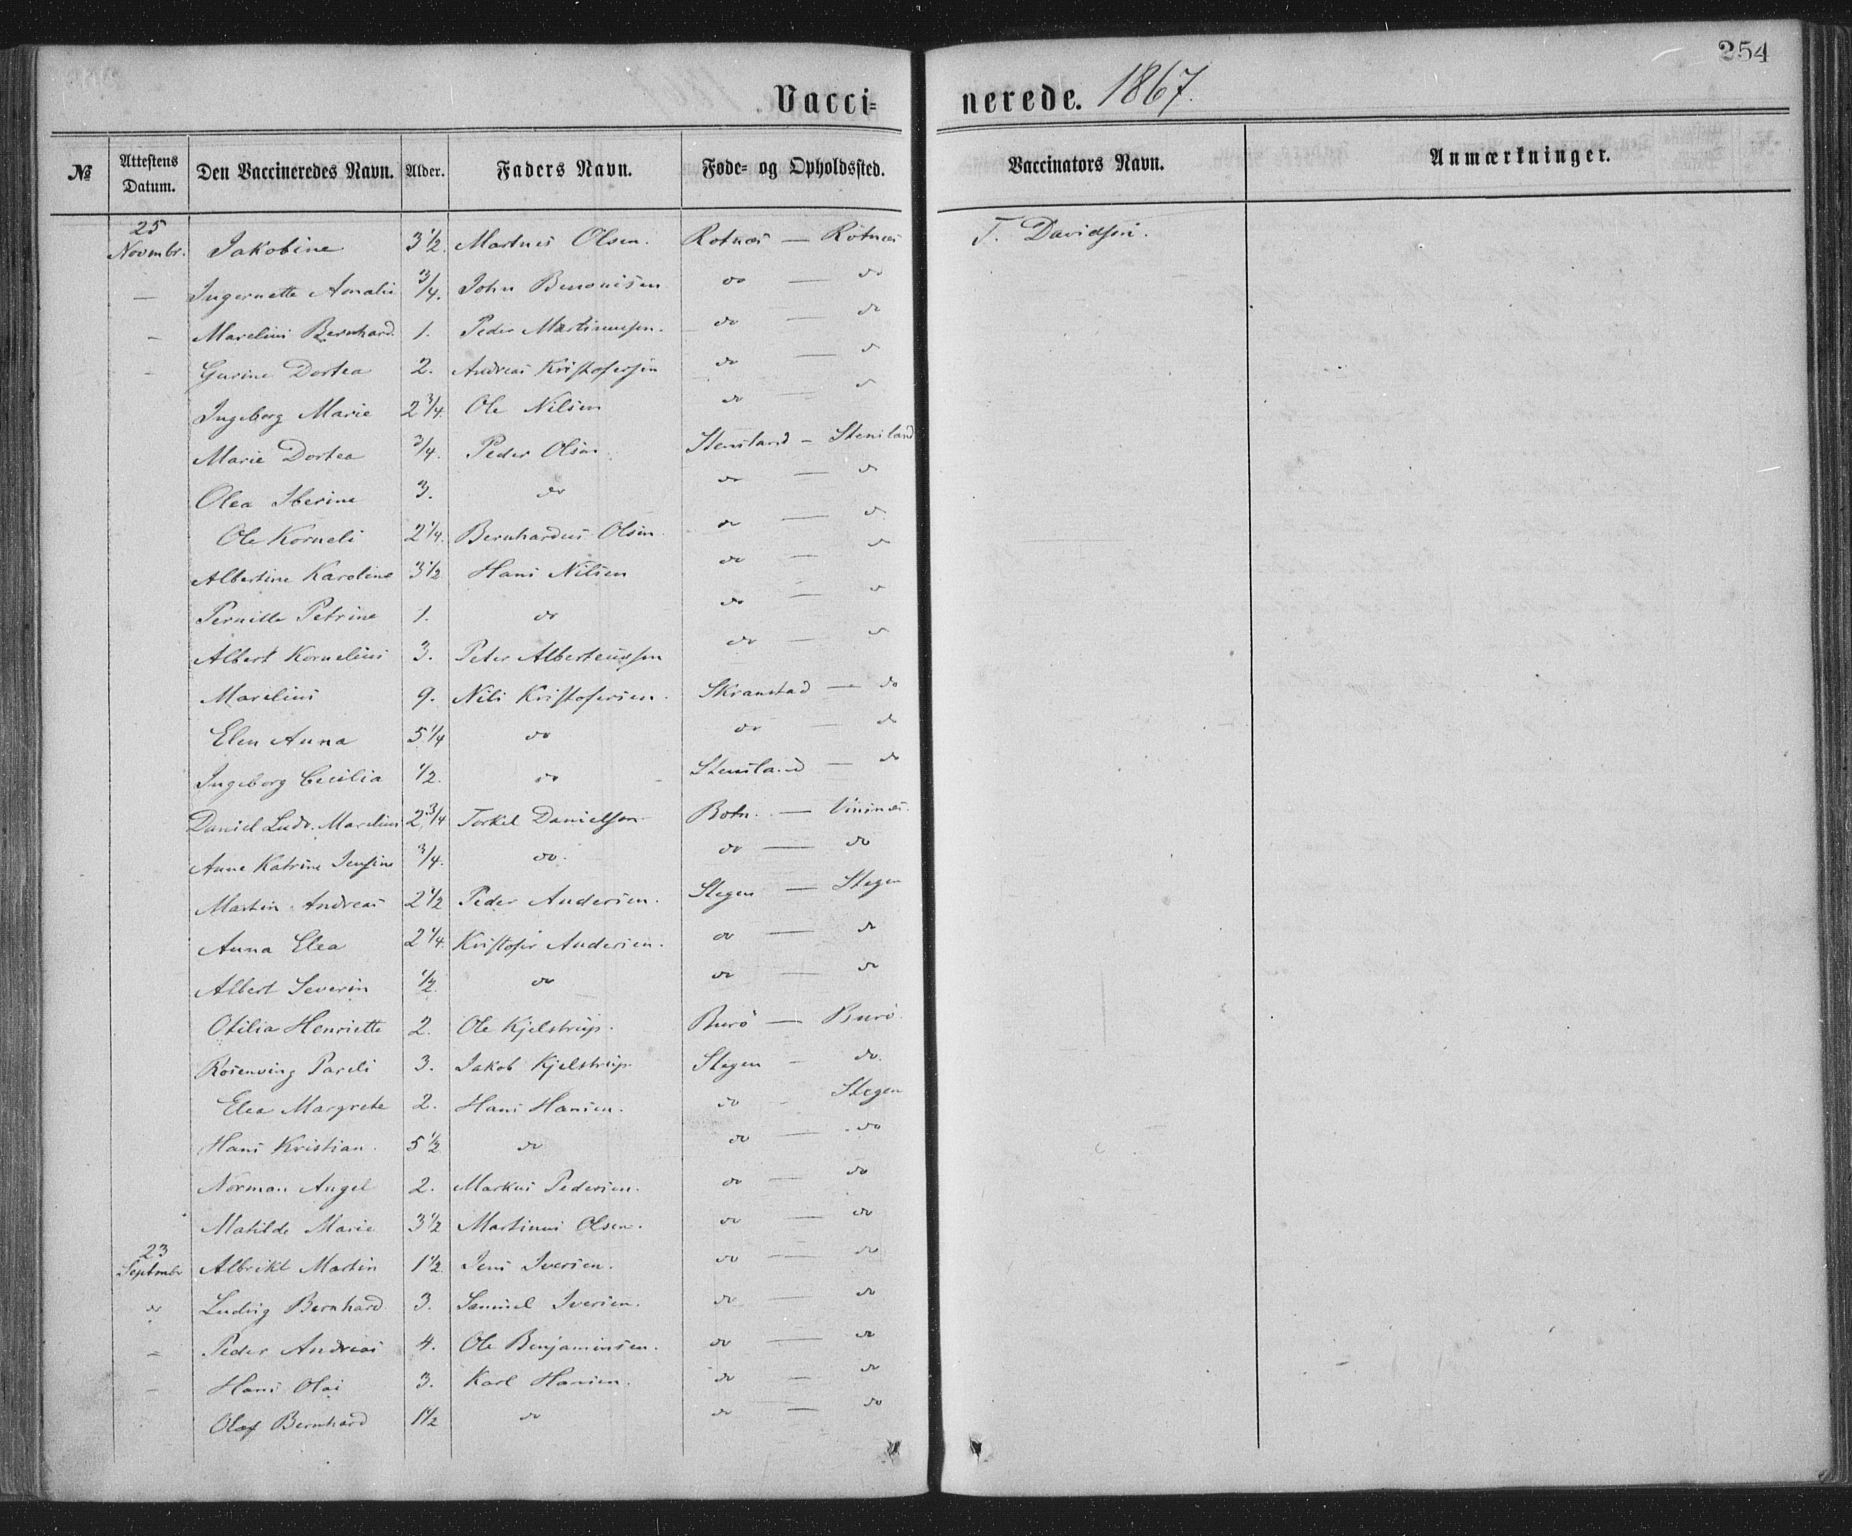 254
Vacci= nerede. 1867.
№ Attestens Datum. Den Vaccineredes Navn. Alder. Faders Navn. Føde- og Opholdssted. Vaccinators Navn. Anmærkninger.
25 Novembr. Jakobine 3 1/2. Martnus Olsen. Rotnæs — Rotnæs T. Davidsen.
— Ingernette Amalie 3/4. John Benonisen do — do
– Marelius Bernhard. 1. Peder Martinussen. do — do
– Gurine Dortea 2. Andreas Kristofersen do — do
Ingeborg Marie 2 3/4. Ole Nilsen do — do
Marie Dortea 3/4. Peder Olsen Stensland – Stensland
Olea Iberine 3. do do — do
Ole Korneli 2 1/4. Bernhardus Olsen. do — do
Albertine Karoline 3 1/2 Hans Nilsen do — do
Pernille Petrine 1. do do — do
Albert Kornelius 3. Peter Alberteussen do — do
Marelius 9. Nils Kristofersen. Skranstad — do
Elen Anna 5 1/4 do do — do
Ingeborg Cecilia 1/2. do Stensland — do
Daniel Ludv. Marelius 2 3/4 Torkel Danielsen Botn. — Vininæs.
Anne Katrine Jensine 3/4. do. do — do
Martin Andreas 2 1/2 Peder Andersen. Stegen — Stegen
Anna Elea 2 1/4. Kristofer Andersen. do — do
Albert Severin 1/2. do do — do
Otilia Henriette 2. Ole Kjelstrup. Burö — Burö.
Rosenving Pareli 3. Jakob Kjelstrup. Stegen – do.
Elea Margrete 2. Hans Hansen. do – Stegen
Hans Kristian. 5 1/2 do do — do
Norman Angel 2. Markus Pedersen. do — do
Matilde Marie 3 1/2 Martinus Olsen. do — do
23 Septembr Albrikt Martin 1 1/2. Jens Iversen. do — do
do Ludvig Bernhard 3. Samuel Iversen. do — do
– Peder Andreas 4. Ole Benjaminsen. do — do
– Hans Olai 3. Karl Hansen. do — do
Olaf Bernhard 1 1/2 do do — do